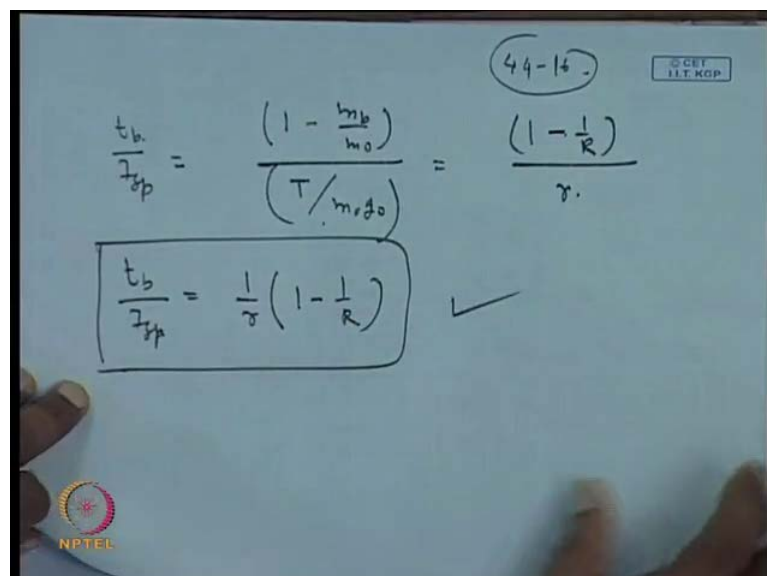 44-16.
© CET
I.I.T. KGP
t_b. / I_sp = (1 - m_b/m_0) / (T/m_0 g_0) = (1 - 1/R) / r.
t_b / I_sp = 1/r (1 - 1/R) ✓
NPTEL